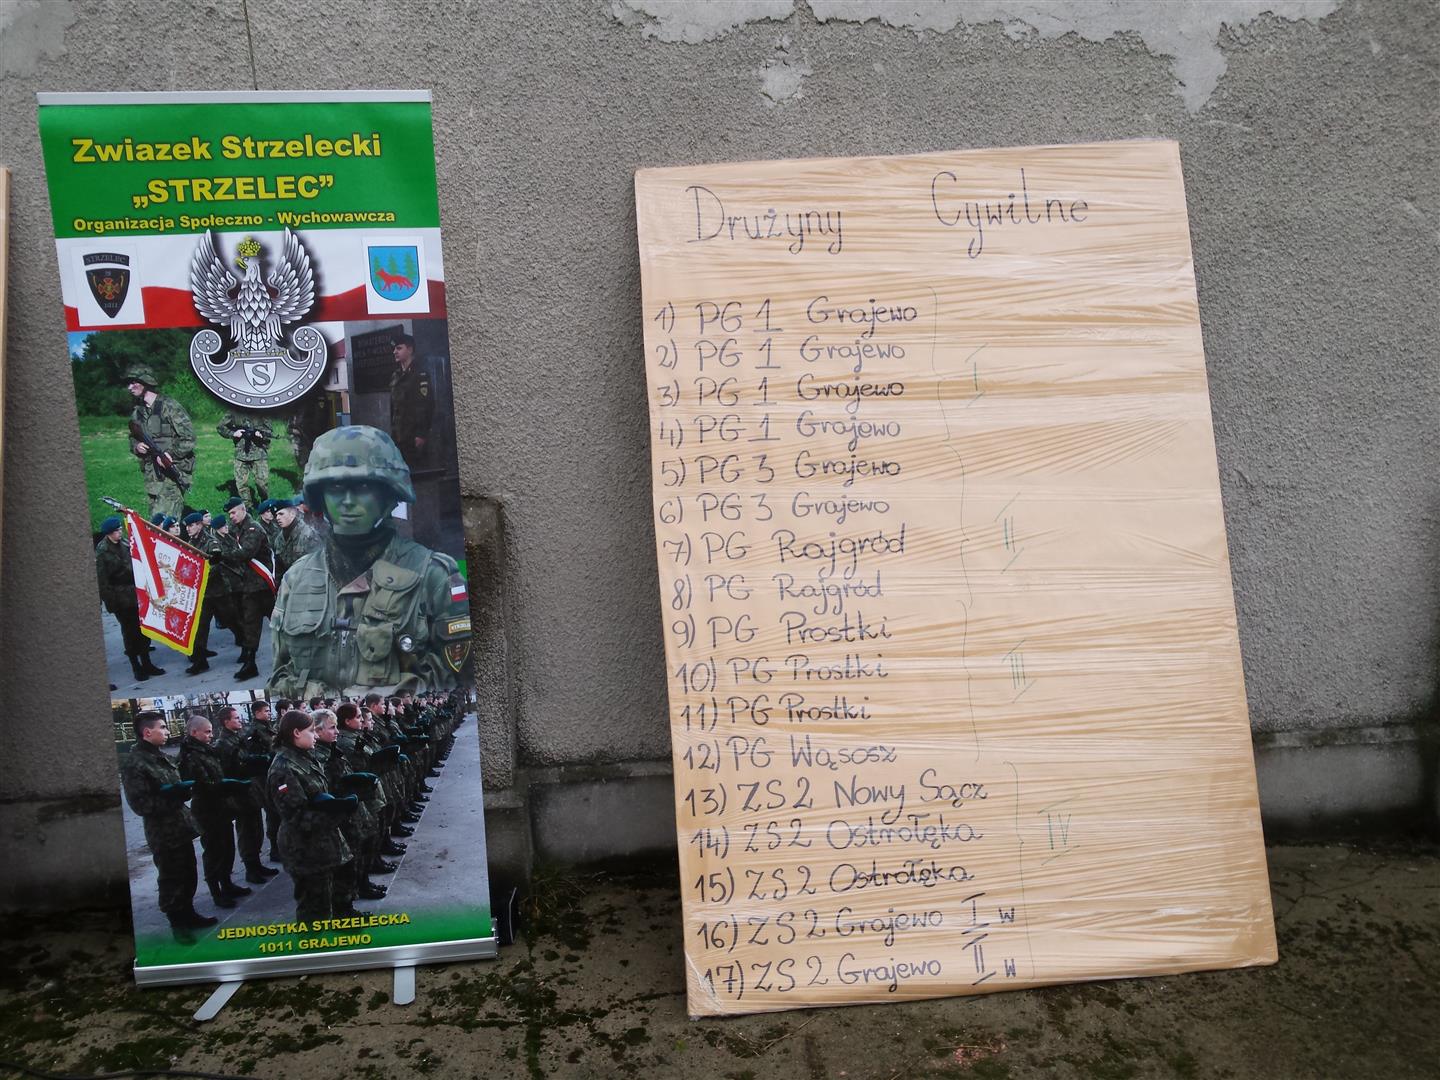 Zwiazek Strzelecki
„STRZELEC”
Organizacja Społeczno - Wychowawcza
STRZELEC
1011
S
JEDNOSTKA STRZELECKA
1011 GRAJEWO
Drużyny Cywilne
1) PG 1 Grajewo
2) PG 1 Grajewo
3) PG 1 Grajewo
4) PG 1 Grajewo
I
5) PG 3 Grajewo
6) PG 3 Grajewo
7) PG Rajgród
8) PG Rajgród
II
9) PG Prostki
10) PG Prostki
11) PG Prostki
12) PG Wąsosz
III
13) ZS 2 Nowy Sącz
14) ZS 2 Ostrołęka
15) ZS 2 Ostrołęka
16) ZS 2 Grajewo I w
17) ZS 2 Grajewo II w
IV